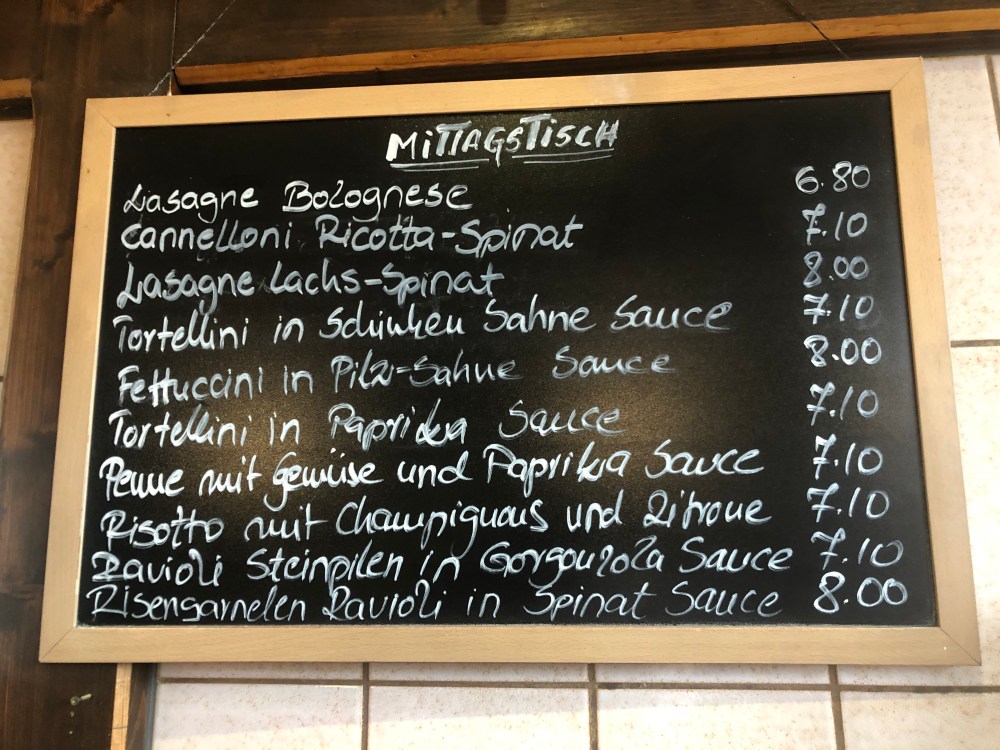 MITTAGSTISCH
Lasagne Bolognese 6.80
Cannelloni Ricotta-Spinat 7.10
Lasagne Lachs-Spinat 8.00
Tortellini in Schinken Sahne Sauce 7.10
Fettuccini in Pilz-Sahne Sauce 8.00
Tortellini in Paprika Sauce 7.10
Penne mit Gemüse und Paprika Sauce 7.10
Risotto mit Champignons und Zitrone 7.10
Ravioli Steinpilen in Gorgonzola Sauce 7.10
Risengarnelen Ravioli in Spinat Sauce 8.00